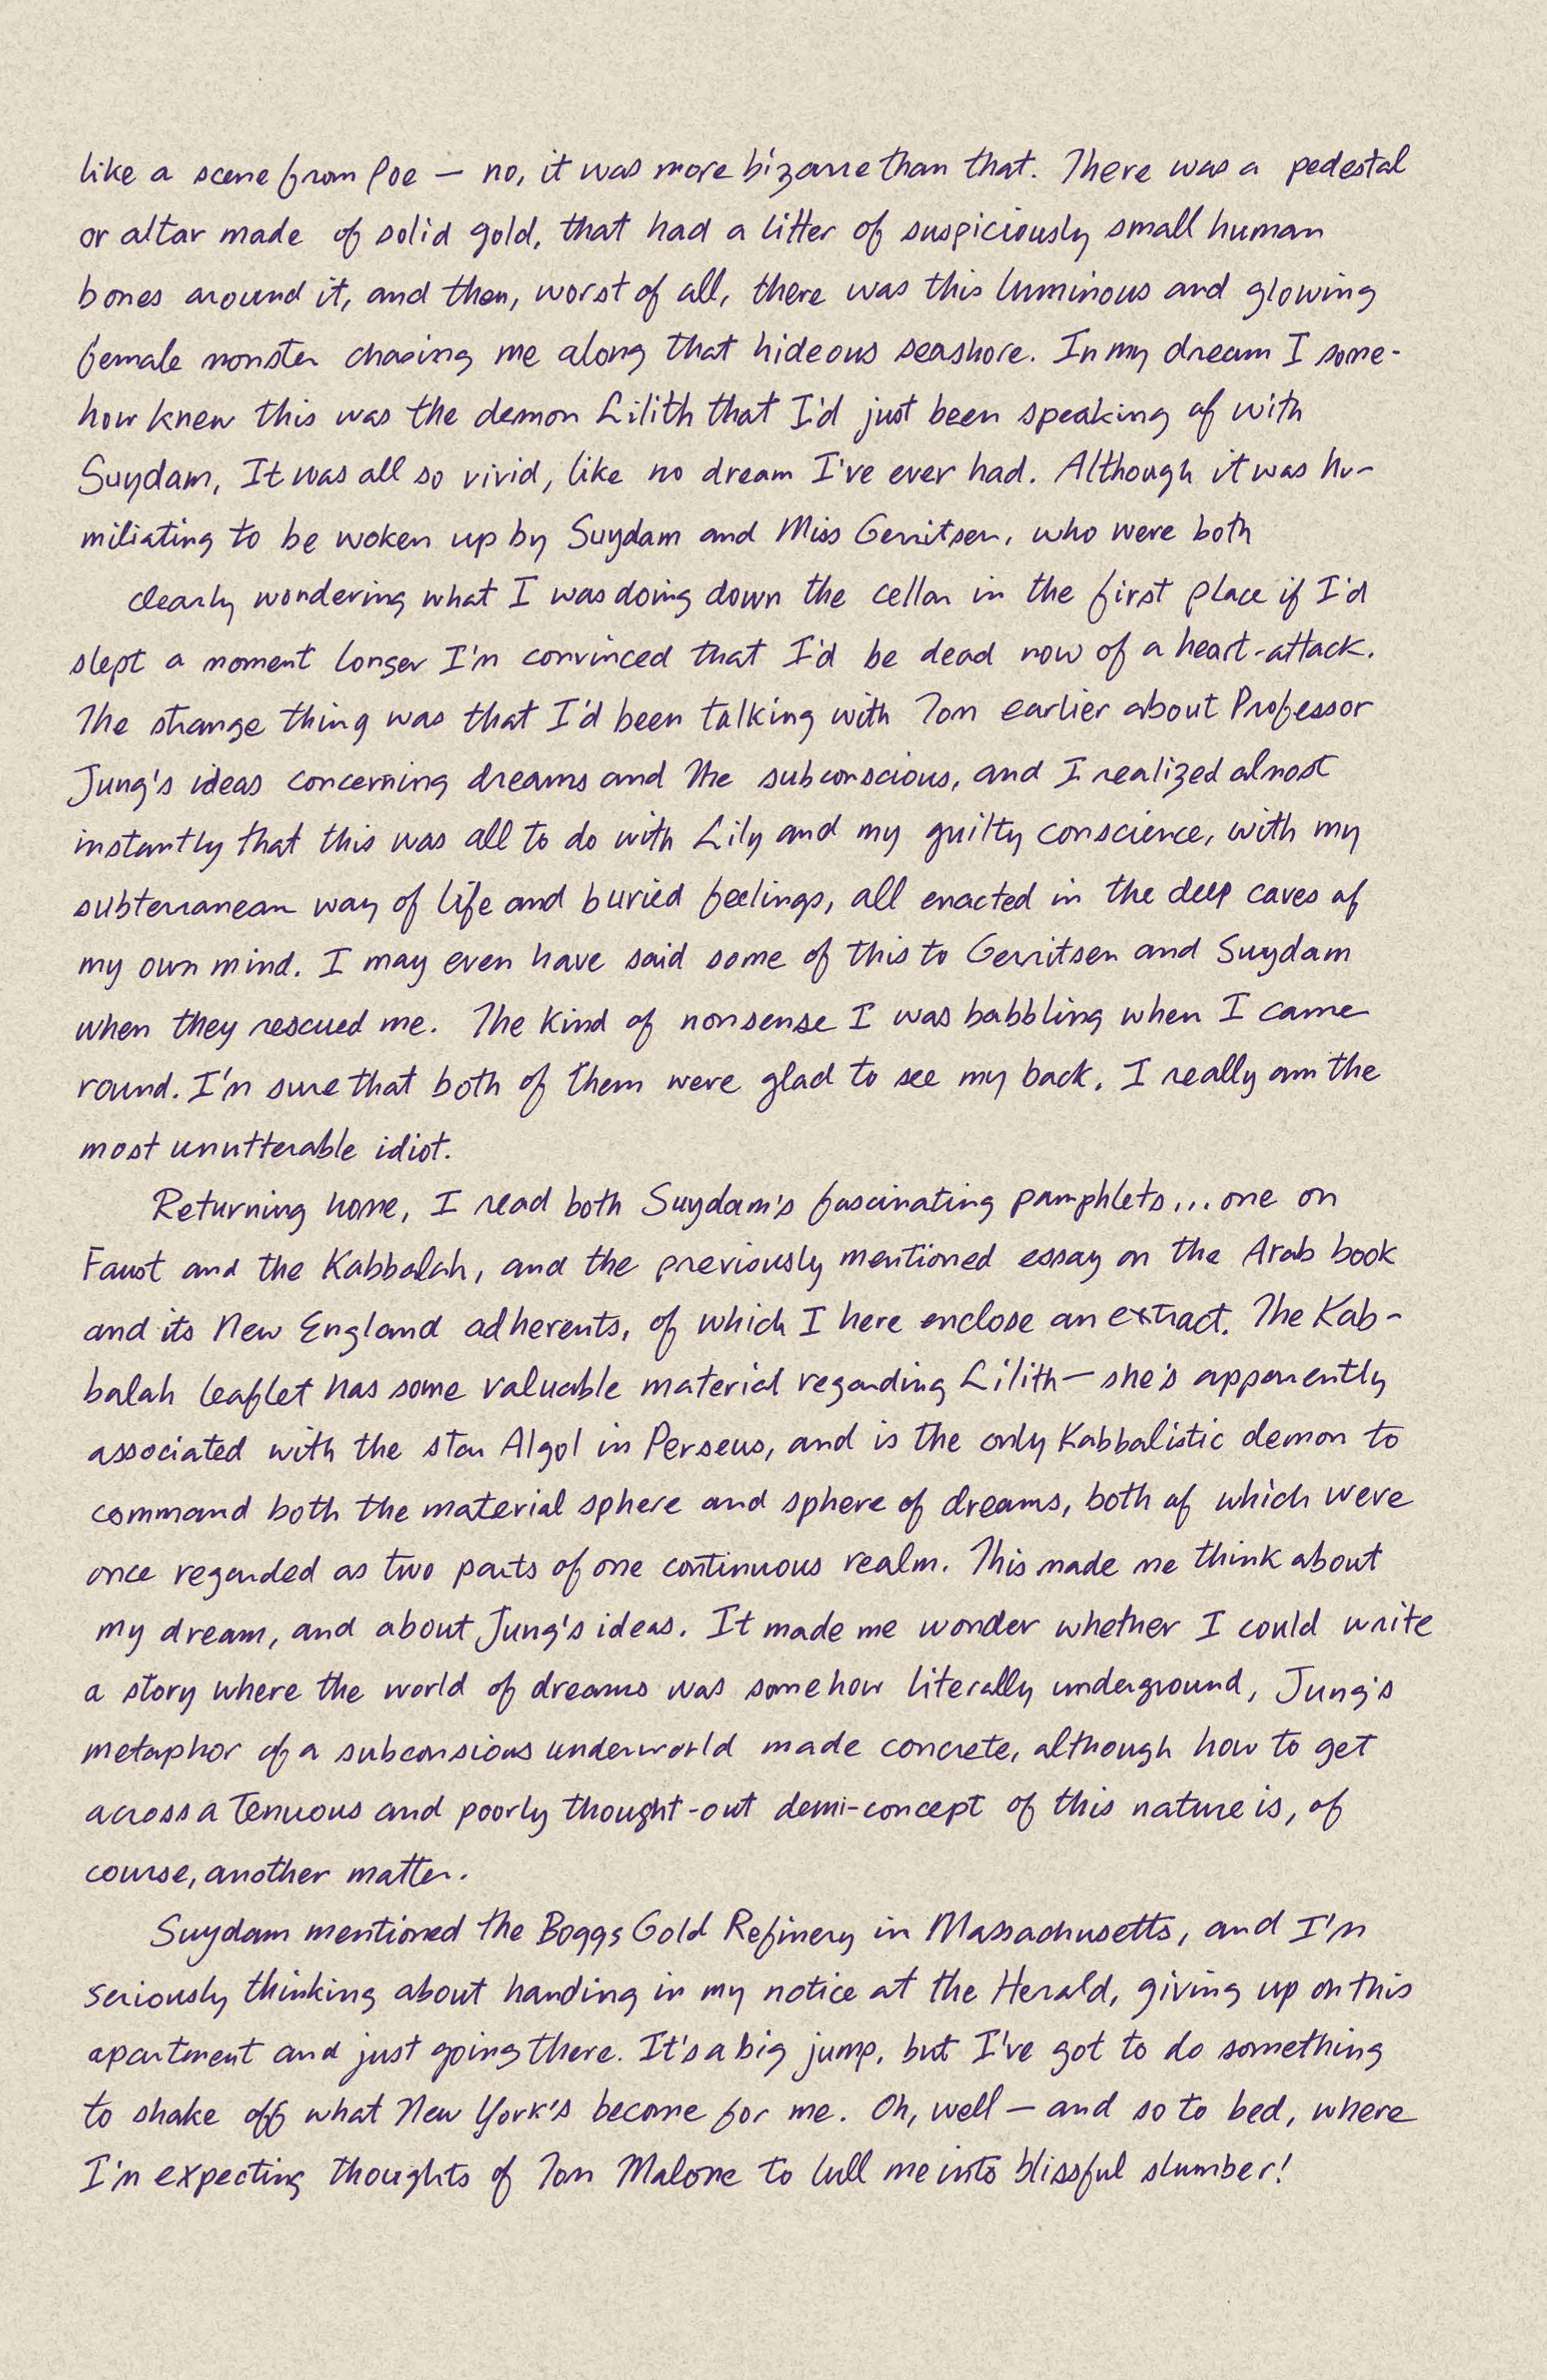 like a scene from Poe — no, it was more bizarre than that. There was a pedestal
or altar made of solid gold, that had a litter of suspiciously small human
bones around it, and then, worst of all, there was this luminous and glowing
female monster chasing me along that hideous seashore. In my dream I some-
how knew this was the demon Lilith that I'd just been speaking of with
Suydam, It was all so vivid, like no dream I've ever had. Although it was hu-
miliating to be woken up by Suydam and Miss Gerritsen, who were both
clearly wondering what I was doing down the cellar in the first place if I'd
slept a moment longer I'm convinced that I'd be dead now of a heart-attack.
The strange thing was that I'd been talking with Tom earlier about Professor
Jung's ideas concerning dreams and the subconscious, and I realized almost
instantly that this was all to do with Lily and my guilty conscience, with my
subterranean way of life and buried feelings, all enacted in the deep caves of
my own mind. I may even have said some of this to Gerritsen and Suydam
when they rescued me. The kind of nonsense I was babbling when I came
round. I'm sure that both of them were glad to see my back. I really am the
most unutterable idiot.
Returning home, I read both Suydam's fascinating pamphlets... one on
Faust and the Kabbalah, and the previously mentioned essay on the Arab book
and its New England adherents, of which I here enclose an extract. The Kab-
balah leaflet has some valuable material regarding Lilith — she's apparently
associated with the star Algol in Perseus, and is the only Kabbalistic demon to
command both the material sphere and sphere of dreams, both of which were
once regarded as two parts of one continuous realm. This made me think about
my dream, and about Jung's ideas. It made me wonder whether I could write
a story where the world of dreams was somehow literally underground, Jung's
metaphor of a subconsious underworld made concrete, although how to get
across a tenuous and poorly thought-out demi-concept of this nature is, of
course, another matter.
Suydam mentioned the Boggs Gold Refinery in Massachusetts, and I'm
seriously thinking about handing in my notice at the Herald, giving up on this
apartment and just going there. It's a big jump, but I've got to do something
to shake off what New York's become for me. Oh, well — and so to bed, where
I'm expecting thoughts of Tom Malone to lull me into blissful slumber!